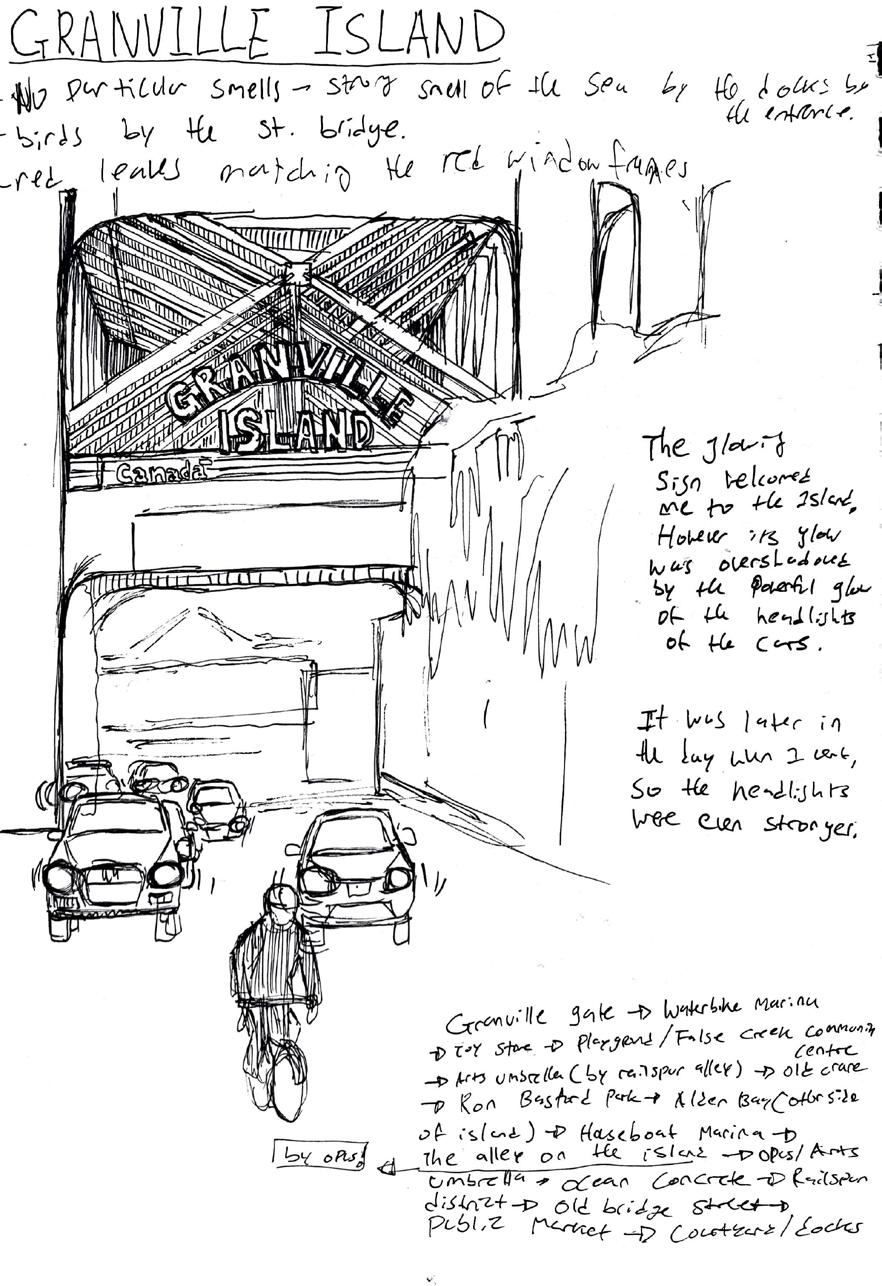 GRANVILLE ISLAND
- No particular smells → strong smell of the sea by the docks by
the entrance.
- birds by the st. bridge.
- red leaves matching the red window frames
GRANVILLE
ISLAND
Canada
The glowing
sign welcomed
me to the Island.
However its glow
was overshadowed
by the powerful glow
of the headlights
of the cars.
It was later in
the day when I went,
so the headlights
were even stronger.
Granville gate → Waterbike Marina
→ toy store → Playground/False Creek Community
centre
→ Arts umbrella (by railspur alley) → old crane
→ Ron Basford Park → Alder Bay (other side
of island) → Houseboat Marina →
The alley on the island → Opus/Arts
by opus!
umbrella → ocean Concrete → Railspur
district → Old bridge street →
Public Market → Courtyard/docks